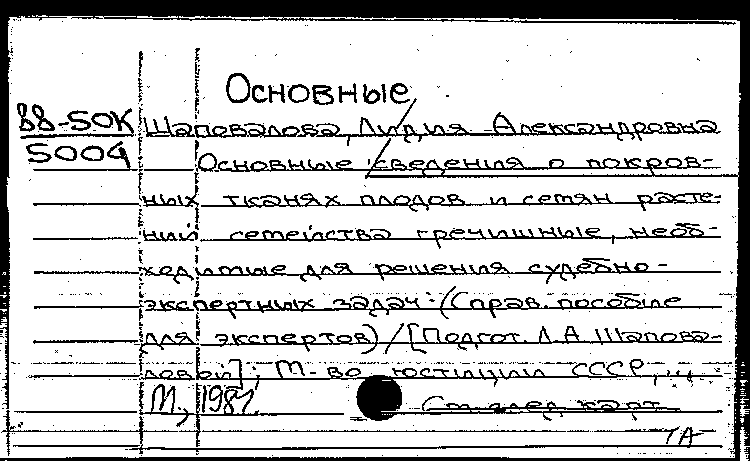 Основные
88-50К
5004
Шаповалова, Лидия Александровна
Основные сведения о покров-
ных тканях плодов и семян расте-
ний семейства гречишные, необ-
ходимые для решения судебно-
экспертных задач: (Справ. пособие
для экспертов) / [Подгот. Л.А. Шапова-
ловой]; М-во юстиции СССР,...
М., 198
См. след. карт.